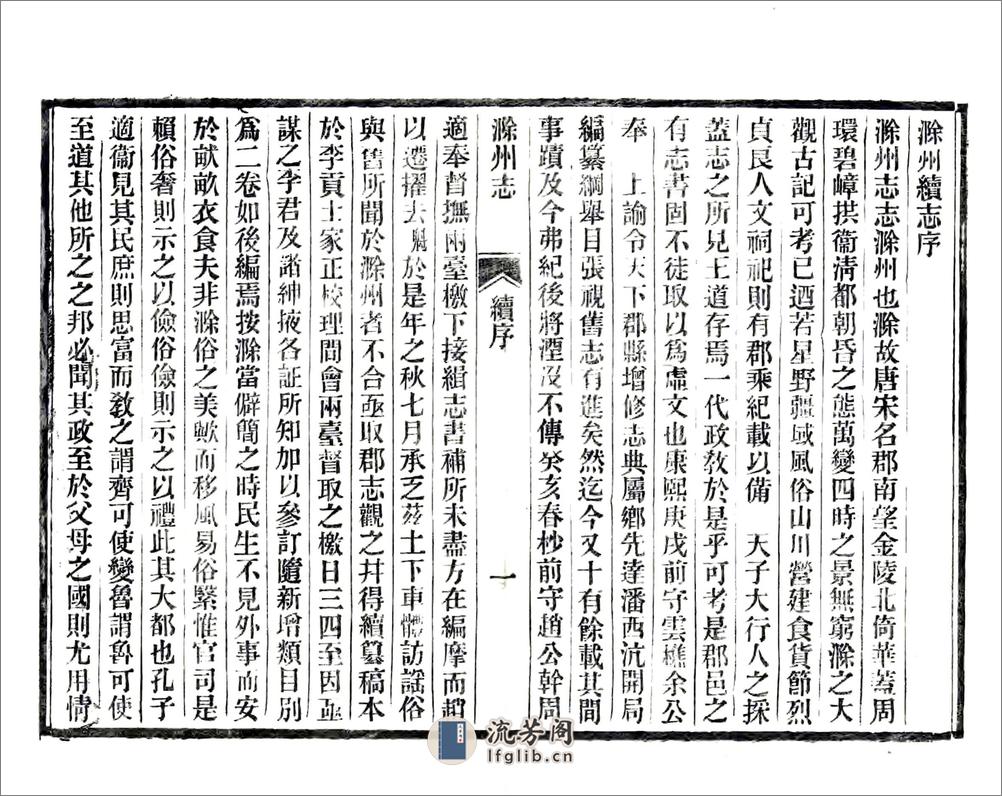 滁州續志序
滁州志志滁州也滁故唐宋名郡南望金陵北倚華蓋周
環碧嶂拱衞淸都朝昏之態萬變四時之景無窮滁之大
觀古記可考已迺若星野疆域風俗山川營建食貨節烈
貞良人文祠祀則有郡乘紀載以備　天子大行人之採
蓋志之所見王道存焉一代政敎於是乎可考是郡邑之
有志書固不徒取以爲虛文也康熙庚戌前守雲樵余公
奉　上諭令天下郡縣增修志典屬鄉先達潘西沆開局
編纂綱舉目張視舊志有進矣然迄今又十有餘載其間
事蹟及今弗紀後將湮沒不傳癸亥春杪前守趙公幹周
滁州志
續序
一
適奉督撫兩臺檄下接緝志書補所未盡方在編摩而趙
以遷擢去魁於是年之秋七月承乏茲土下車體訪謠俗
與舊所聞於滁州者不合亟取郡志觀之幷得續纂稿本
於李貢士家正校理間會兩臺督取之檄日三四至因亟
謀之李君及諸紳掖各証所知加以參訂隨新增類目別
爲二卷如後編焉按滁當僻簡之時民生不見外事而安
於畎畝衣食夫非滁俗之美歟而移風易俗繄惟官司是
賴俗奢則示之以儉俗儉則示之以禮此其大都也孔子
適衞見其民庶則思富而敎之謂齊可使變魯謂魯可使
至道其他所之之邦必聞其政至於父母之國則尤用情
流芳閣
lfglib.cn